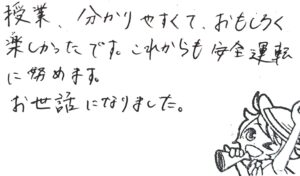 授業、分かりやすくて、おもしろく
楽しかったです。これからも安全運転
に努めます。
お世話になりました。